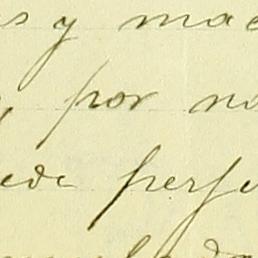 s y mae
, por no
ede perfe